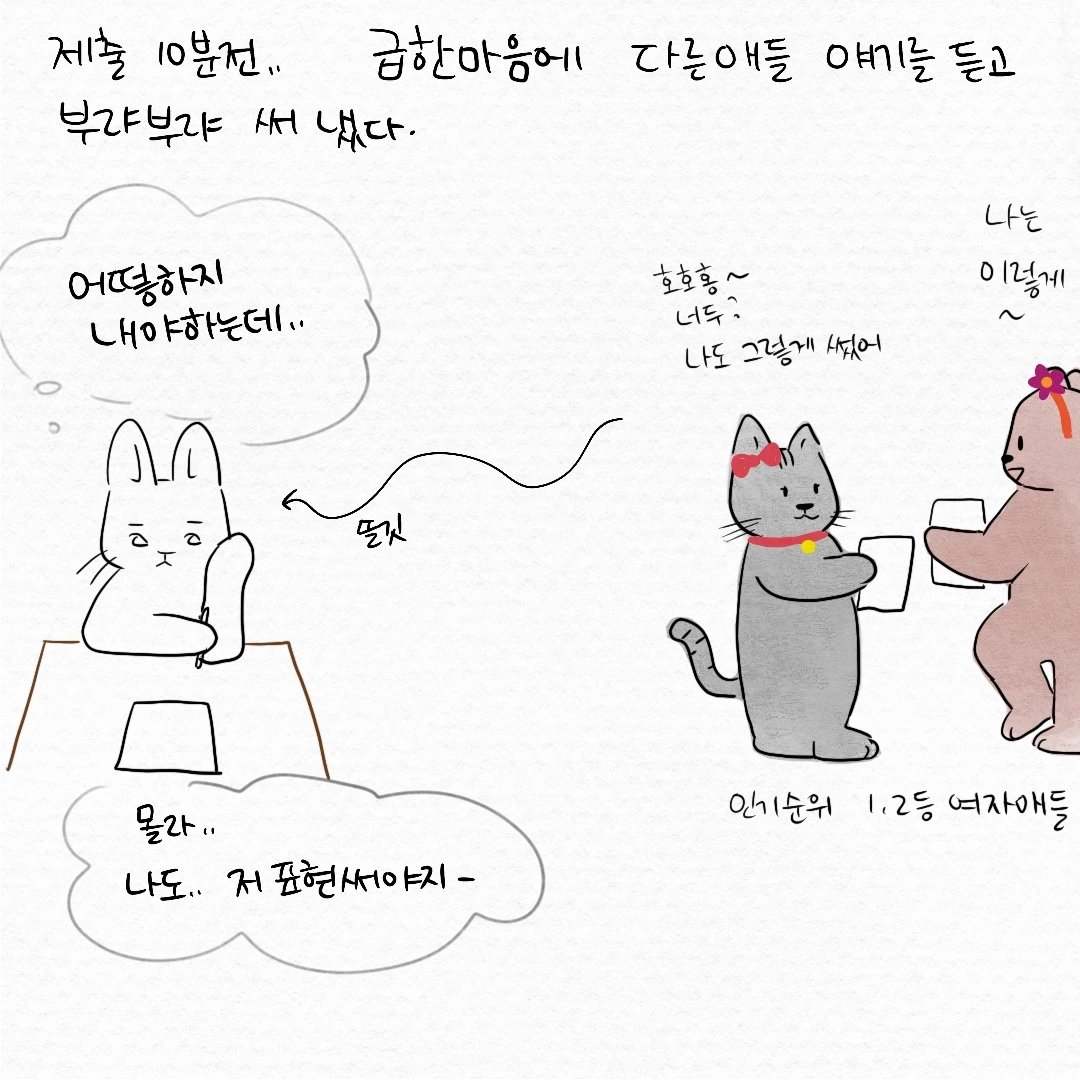 제출 10분전.. 급한마음에 다른애들 얘기를 듣고
부랴부랴 써 냈다.
어떻하지
내야하는데..
호호홍~
너두?
나도 그렇게 썼어
나는
이렇게
~
띨깃
인기순위 1.2등 여자애들
몰라..
나도.. 저 표현써야지-